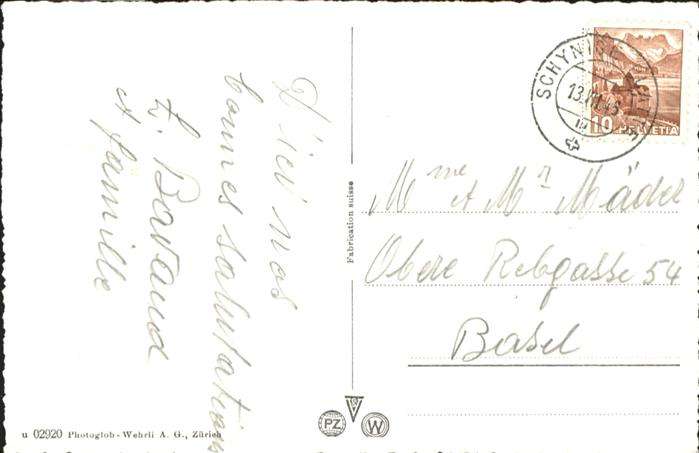 D'ici nos
bonnes salutations
L. Bavaud
et famille
Fabrication suisse
SCHYNIGE
13.VII.43
10 HELVETIA
Mme et Mr Mäder
Obere Rebgasse 54
Basel
PZ W
u 02920 Photoglob-Wehrli A. G., Zürich